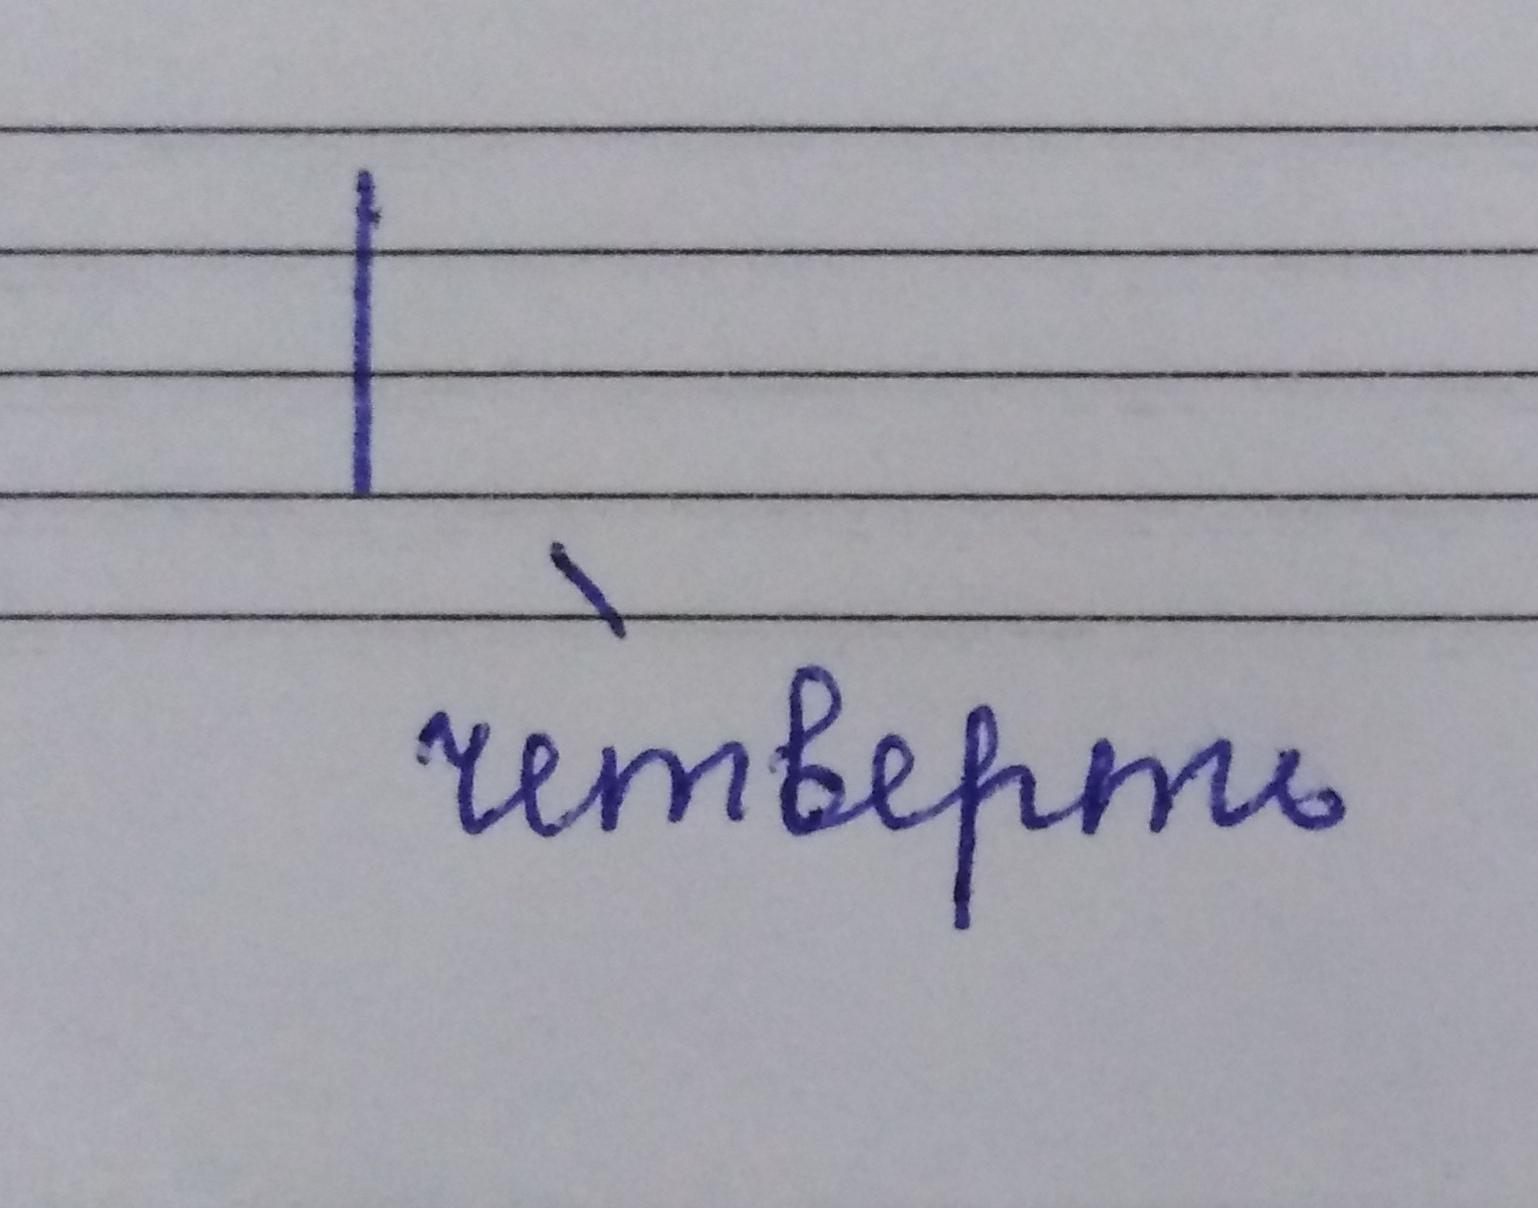 четверть